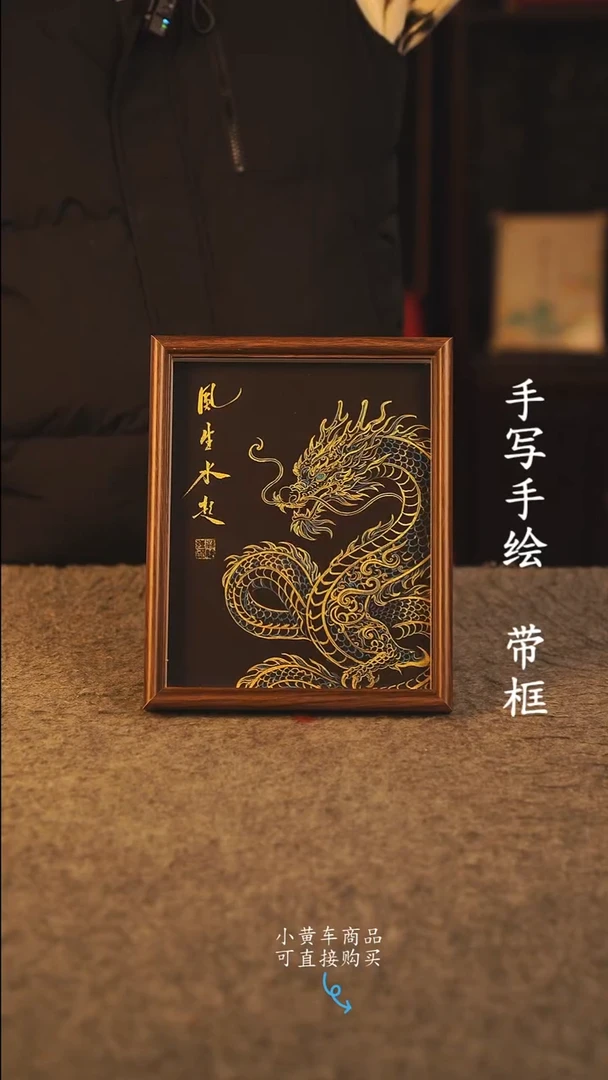 風生水起
手写手绘 带框
小黄车商品
可直接购买